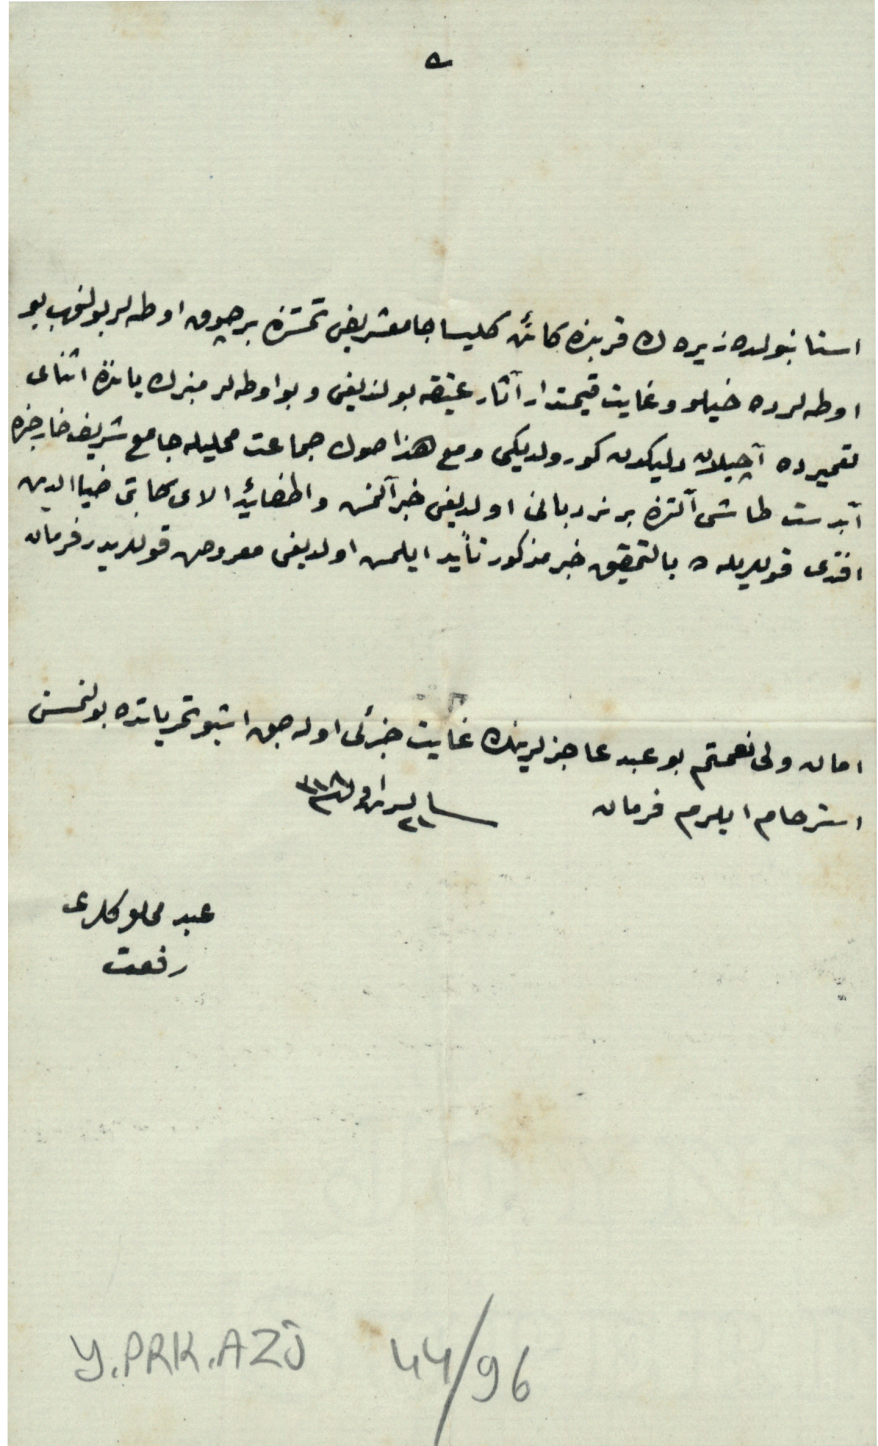 استانبولده زيرك قربنده كائن كليسا جامعشريفى تحتنده برچوق اوطه لر بولنهرق بو
اوطه لرده خيلو و غايت قيمتدار آثار عتيقه بولنديغى و بو اوطه لر منبرك ياننده اثناى
تعميرده آچيلان دليكدن كورولديكى ومع هذا صوك جماعت محليله جامع شريف خارجنده
آبدست طاشى آلتنده بر نردبانى اولديغى خبر آلنمش واطفائيه آلاى كاتبى ضياالدين
افندى قوللريله ده بالتحقيق خبر مذكور تأييد ايلمش اولديغى معروض قوللريدر فرمان
امان ولى نعمتم بو عبد عاجزلرينك غايت جزئى اوله جق اشبو تحرياتده بولنمسنى
استرحام ايلرم فرمان ٣١٨
عبد مملوكلرى
رفعت
Y.PRK.AZJ 44/96